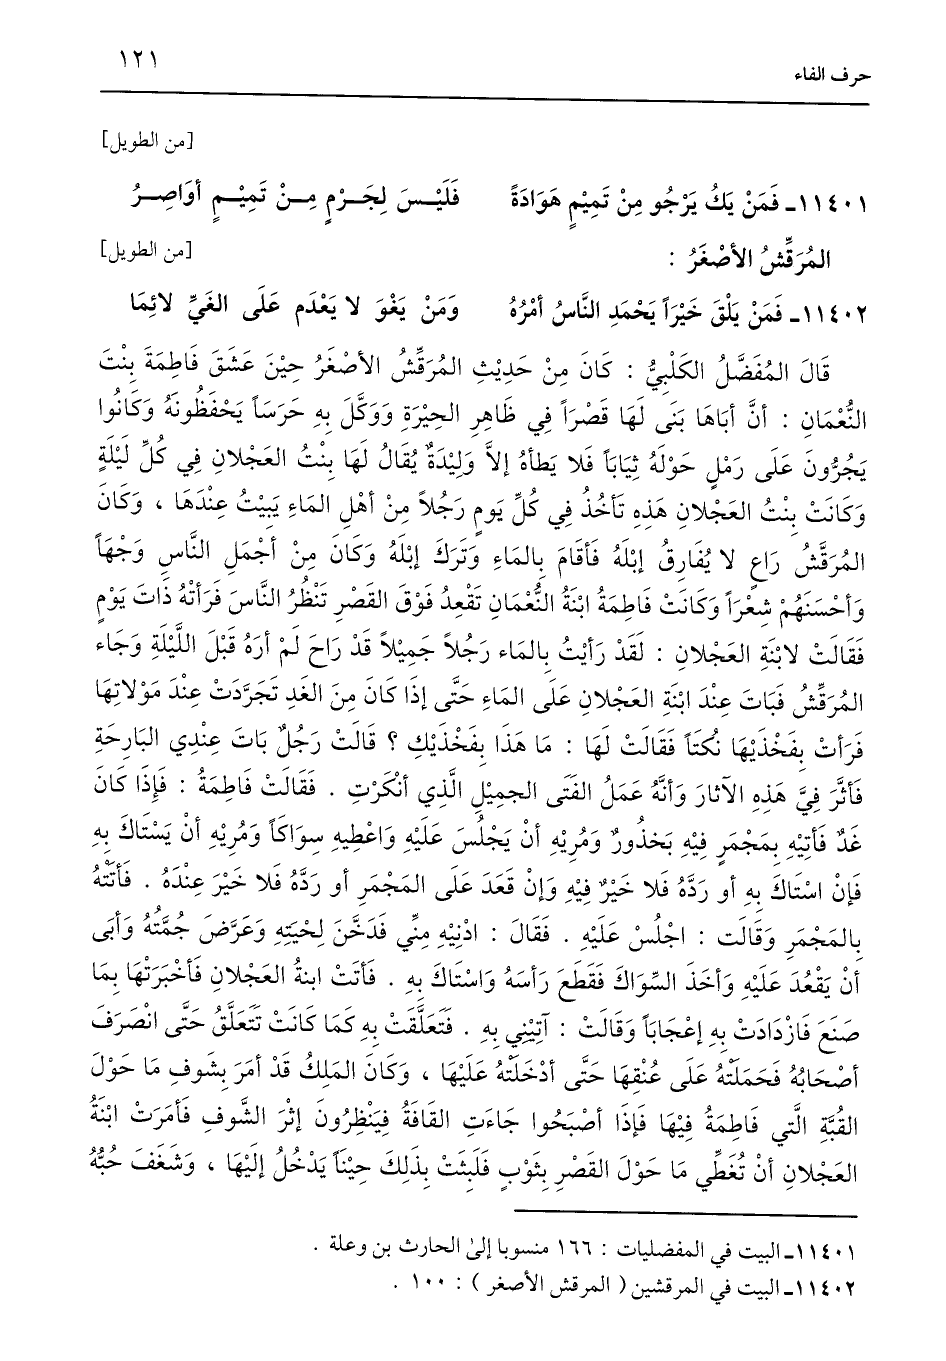 حرف الفاء ١٢١
[من الطويل]
١١٤٠١ـ فَمَنْ يَكُ يَرْجُو مِنْ تَمِيْمٍ هَوَادَةً فَلَيْسَ لِجَرْمٍ مِنْ تَمِيْمٍ أوَاصِرُ
المُرَقِّشُ الأصْغَرُ : [من الطويل]
١١٤٠٢ـ فَمَنْ يَلْقَ خَيْرَاً يَحْمَدِ النَّاسُ أمْرُهُ وَمَنْ يَغْوَ لا يَعْدَم عَلَى الغَيِّ لائِمَا
قَالَ المُفَضَّلُ الكَلْبِيُّ : كَانَ مِنْ حَدِيْثِ المُرَقِّشُ الأصْغَرُ حِيْنَ عَشَقَ فَاطِمَةَ بِنْتَ
النُّعْمَانِ : أنَّ أبَاهَا بَنَى لَهَا قَصْرَاً فِي ظَاهِرِ الحِيْرَةِ وَوَكَّلَ بِهِ حَرَسَاً يَحْفَظُونَهُ وَكَانُوا
يَجُرُّونَ عَلَى رَمْلٍ حَوْلَهُ ثِيَابَاً فَلا يَطَأهُ إلاَّ وَلِيْدَةٌ يُقَالُ لَهَا بِنْتُ العَجْلانِ فِي كُلِّ لَيْلَةٍ
وَكَانَتْ بِنْتُ العَجْلانِ هَذِهِ تَأخُذُ فِي كُلِّ يَومٍ رَجُلاً مِنْ أهْلِ المَاءِ يَبِيْتُ عِنْدَهَا ، وَكَانَ
المُرَقَّشُ رَاعٍ لا يُفَارِقُ إبْلَهُ فَأقَامَ بِالمَاءِ وَتَرَكَ إبْلَهُ وَكَانَ مِنْ أجْمَلِ النَّاسِ وَجْهَاً
وَأحْسَنَهُمْ شِعْرَاً وَكَانَتْ فَاطِمَةُ ابْنَةُ النُّعْمَانِ تَقْعِدُ فَوْقَ القَصْرِ تَنْظُرُ النَّاسَ فَرَأتْهُ ذَاتَ يَوْمٍ
فَقَالَتْ لابْنَةِ العَجْلانِ : لَقَدْ رَأيْتُ بِالمَاء رَجُلاً جَمِيْلاً قَدْ رَاحَ لَمْ أرَهُ قَبْلَ اللَّيْلَةِ وَجَاء
المُرَقِّشُ فَبَاتَ عِنْدَ ابْنَةِ العَجْلانِ عَلَى المَاءِ حَتَّى إذَا كَانَ مِنَ الغَدِ تَجَرَّدَتْ عِنْدَ مَوْلاتِهَا
فَرَأتْ بِفَخْذَيْهَا نُكَتَاً فَقَالَتْ لَهَا : مَا هَذَا بِفَخْذَيْكِ ؟ قَالَتْ رَجُلٌ بَاتَ عِنْدِي البَارِحَةِ
فَأثَّرَ فِيَّ هَذِهِ الآثَارَ وَأنَّهُ عَمَلُ الفَتَى الجمِيْلِ الَّذِي أنْكَرْتِ . فَقَالَتْ فَاطِمَةُ : فَإذَا كَانَ
غَدٌ فَأتِيْهِ بِمَجْمَرٍ فِيْهِ بَخذُورٌ وَمُرِيْهِ أنْ يَجْلُسَ عَلَيْهِ وَاعْطِيهِ سِوَاكَاً وَمُرِيْهِ أنْ يَسْتَاكَ بِهِ
فَإنْ اسْتَاكَ بِهِ أو رَدَّهُ فَلا خَيْرٌ فِيْهِ وَإنْ قَعَدَ عَلَى المَجْمَرِ أو رَدَّهُ فَلا خَيْرَ عِنْدَهُ . فَأتَتْهُ
بِالمَجْمَرِ وَقَالَت : اجْلُسْ عَلَيْهِ . فَقَالَ : ادْنِيْهِ مِنِّي فَدَخَّنَ لِحْيَتِهِ وَعَرَّضَ جُمَّتُهُ وَأبَى
أنْ يَقْعُدَ عَلَيْهِ وَأخَذَ السِّوَاكَ فَقَطَعَ رَأسَهُ وَاسْتَاكَ بِهِ . فَأتَتْ ابنةُ العَجْلانِ فَأخْبَرَتْهَا بِمَا
صَنَعَ فَازْدَادَتْ بِهِ إعْجَابَاً وَقَالَتْ : آتِيْنِي بِهِ . فَتَعَلَّقَتْ بِهِ كَمَا كَانَتْ تَتَعَلَّقُ حَتَّى انْصَرَفَ
أصْحَابُهُ فَحَمَلَتْهُ عَلَى عُنْقِهَا حَتَّى أدْخَلَتْهُ عَلَيْهَا ، وَكَانَ المَلِكُ قَدْ أمَرَ بِشَوفِ مَا حَوْلَ
القُبَّةِ الَّتي فَاطِمَةُ فِيْهَا فَإذَا أصْبَحُوا جَاءَتِ القَافَةُ فَيَنْظِرُونَ إثْرَ الشَّوفِ فَأمَرَتْ ابْنَةُ
العَجْلانِ أنْ تُغَطِّي مَا حَوْلَ القَصْرِ بِثَوْبٍ فَلَبِثَتْ بِذَلِكَ حِيْنَاً يَدْخُلُ إلَيْهَا ، وَشَغَفَ حُبُّهُ
١١٤٠١ـ البيت في المفضليات : ١٦٦ منسوبا إلىٰ الحارث بن وعلة .
١١٤٠٢ـ البيت في المرقشين ( المرقش الأصغر ) : ١٠٠ .